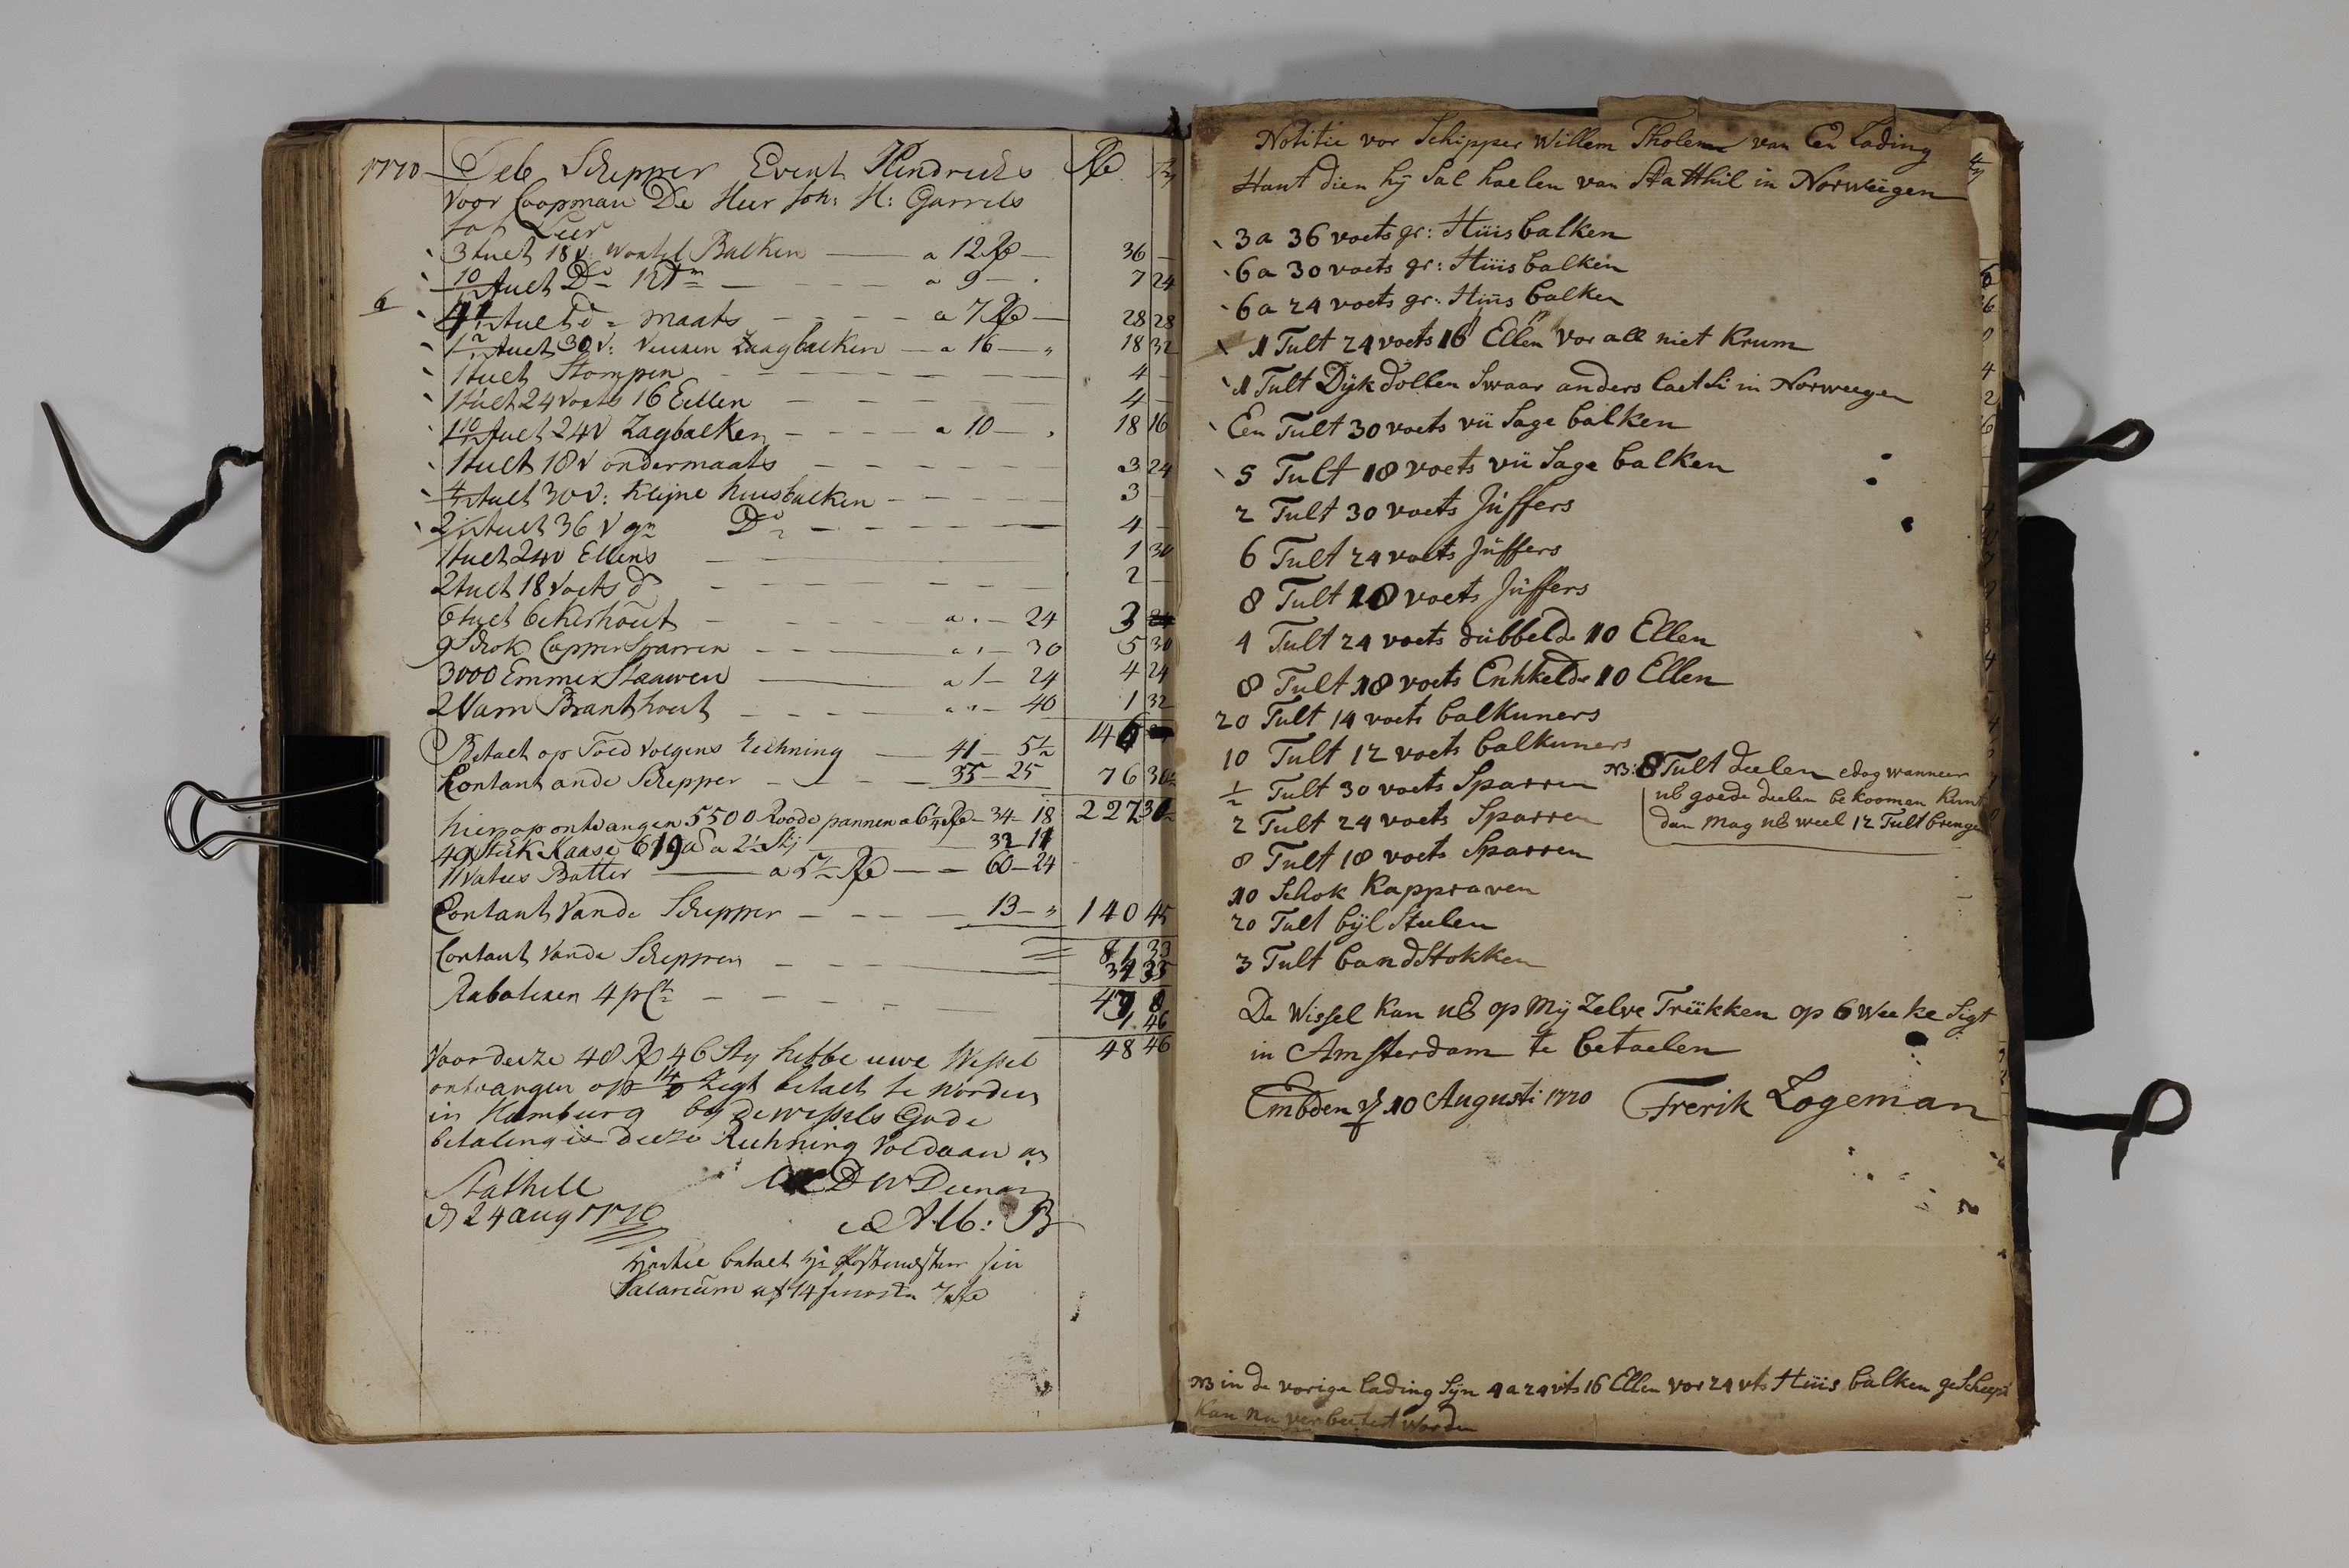 1770 Deb Schepper Evert Hendricks Rd
Voor Coopman De Heer Joh: H: Garrels
tot Leer
3 tult 18 v: Wrakel Balken a 12 Rd 36 —
10/12 tult Do a 9 — 7 24
6 tult do maats a 7 Rd 28 28
1 2/12 tult 30 v: Zaagbalken a 16 18 32
1 tult Stompen 4 —
1 tult 24 voets 16 Eellen 4 —
1 10/12 tult 24 v Zagbalken a 10 18 16
1 tult 18 v ondermaats 3 24
4/12 tult 30 v: Klijne huisbalken 3 —
2/12 tult 36 v gr Do 4 —
1 tult 24 v Ellens 1 30
2 tult 18 voets do 2 —
6 tult bekerhout a - 24 3
9 Schok Capper Sparren a - 30 5 30
3000 Emmer Staauwen a 1 - 24 4 24
2 Vam Branthout a - 40 1 32
146
Betaelt op Toed volgens Rechning 41 — 5 1/2
Contant ande Schepper 35 — 25 76 30 1/2
227 30
hierop ontvangen 5500 Roode pannen a 6 1/4 Rd — 34 — 18
49 Stuk Kaase 619 a 2 1/2 Stj 32 11
11 vaties Botter a 5 1/2 Rd — 60 — 24
Contant Vande Schepper 13 — 140 45
81 33
Contant Vande Scheppen 34 35
47 8
Rabateren 4 pCt 1 46
48 46
Voor deeze 48 Rd 46 Sty hebbe uwe Wessel
ontvangen op Zegt betaelt te worden
in Hamburg by de wessels Gode
betaling is deeze Rechning Voldaan
Stathell
d 24 aug 1770
betaelt
Salarium
Notitie vor Schipper Willem Tholen van Een Lading
Hant dien hÿ Sal haelen van Statthil in Norweegen
3 a 36 voets gr: Hüis balken
6 a 30 voets gr: Hüis balken
6 a 24 voets gr: Hüis balken
1 Tult 24 voets 16 Ellen vor all niet Krum
1 Tult Dÿk dollen Swaar anders laet Si in Norweegen
Een Tult 30 voets vü Sage balken
5 Tult 18 voets vü Sage balken
2 Tult 30 voets Jüffers
6 Tult 24 voets Jüffers
8 Tult 18 voets Jüffers
4 Tult 24 voets dubbelde 10 Ellen
8 Tult 18 voets Enhkelde 10 Ellen
20 Tult 14 voets balkuners
10 Tult 12 voets balkuners
½ Tult 30 voets Sparren
NB: 8 Tult deelen edog wanneer
UE goede deelen bekoomen kunt
dan mag UE weel 12 Tult brengen
2 Tult 24 voets Sparren
8 Tult 18 voets Sparren
10 Schok Kappraven
20 Tult bÿl Steelen
3 Tult bandStokken
De Wissel kan UE op Mÿ Zelve Trükken op 6 Weeke Sigt
in Amsterdam te betaelen
Embden d 10 Augusti 1770 Frerik Logeman
NB in de vorige Lading Sÿn 4 a 24 vts 16 Ellen vor 24 vts Hüis balken gescheept
Kan nu verbeetert Worden